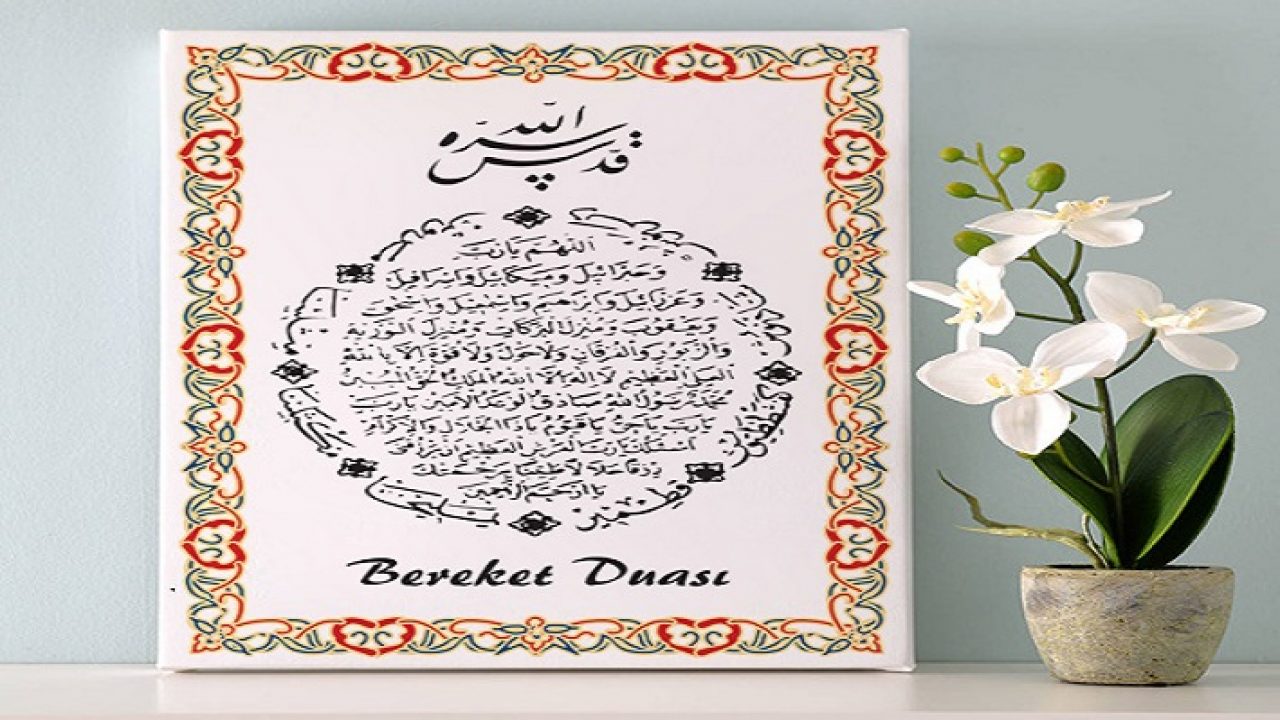 قدّس الله سرّه
اللهم يا رب
وجبرائيل وميكائيل واسرافيل
وعزرائيل وابرهيم واسمعيل واسحق
ويعقوب ومنزل البركات ومنزل التورية
والزبور والفرقان ولا حول ولا قوة الا بالله
العلي العظيم لا اله الا الله الملك الحق المبين
محمد رسول الله صادق الوعد الامين يا رب
يا رب يا حي يا قيوم يا ذا الجلال والاكرام
اسئلك يا رب العرش العظيم ان ترزقني
رزقا حلالا طيبا برحمتك
يا ارحم الراحمين
يمليخا
قطمير
Bereket Duası